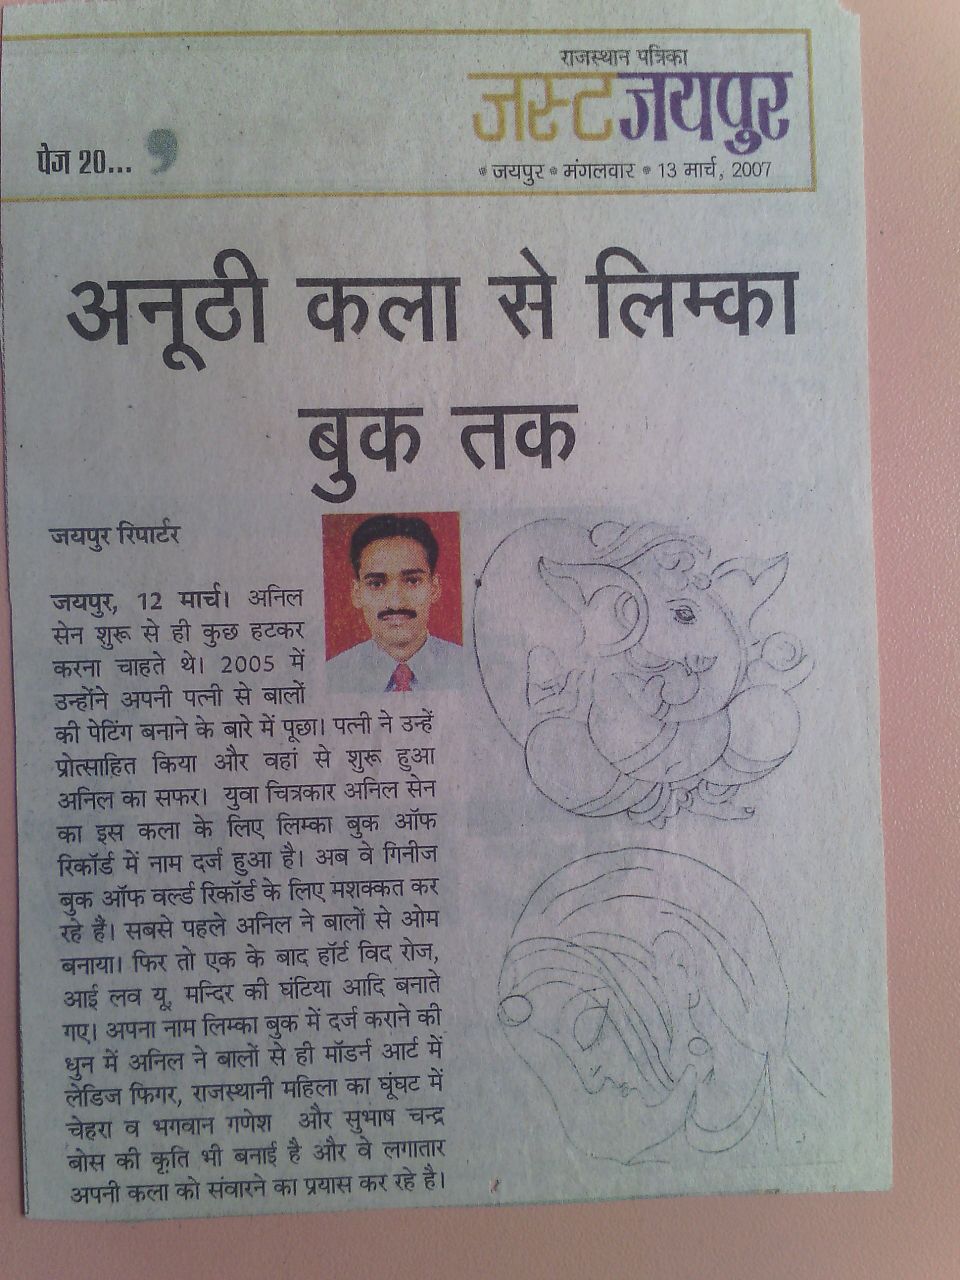 राजस्थान पत्रिका
जस्टजयपुर
पेज 20...
• जयपुर • मंगलवार • 13 मार्च, 2007
अनूठी कला से लिम्का
बुक तक
जयपुर रिपार्टर
जयपुर, 12 मार्च। अनिल
सेन शुरू से ही कुछ हटकर
करना चाहते थे। 2005 में
उन्होंने अपनी पत्नी से बालों
की पेटिंग बनाने के बारे में पूछा। पत्नी ने उन्हें
प्रोत्साहित किया और वहां से शुरू हुआ
अनिल का सफर। युवा चित्रकार अनिल सेन
का इस कला के लिए लिम्का बुक ऑफ
रिकॉर्ड में नाम दर्ज हुआ है। अब वे गिनीज
बुक ऑफ वर्ल्ड रिकॉर्ड के लिए मशक्कत कर
रहे हैं। सबसे पहले अनिल ने बालों से ओम
बनाया। फिर तो एक के बाद हॉर्ट विद रोज,
आई लव यू, मन्दिर की घंटिया आदि बनाते
गए। अपना नाम लिम्का बुक में दर्ज कराने की
धुन में अनिल ने बालों से ही मॉडर्न आर्ट में
लेडिज फिगर, राजस्थानी महिला का घूंघट में
चेहरा व भगवान गणेश और सुभाष चन्द्र
बोस की कृति भी बनाई है और वे लगातार
अपनी कला को संवारने का प्रयास कर रहे है।